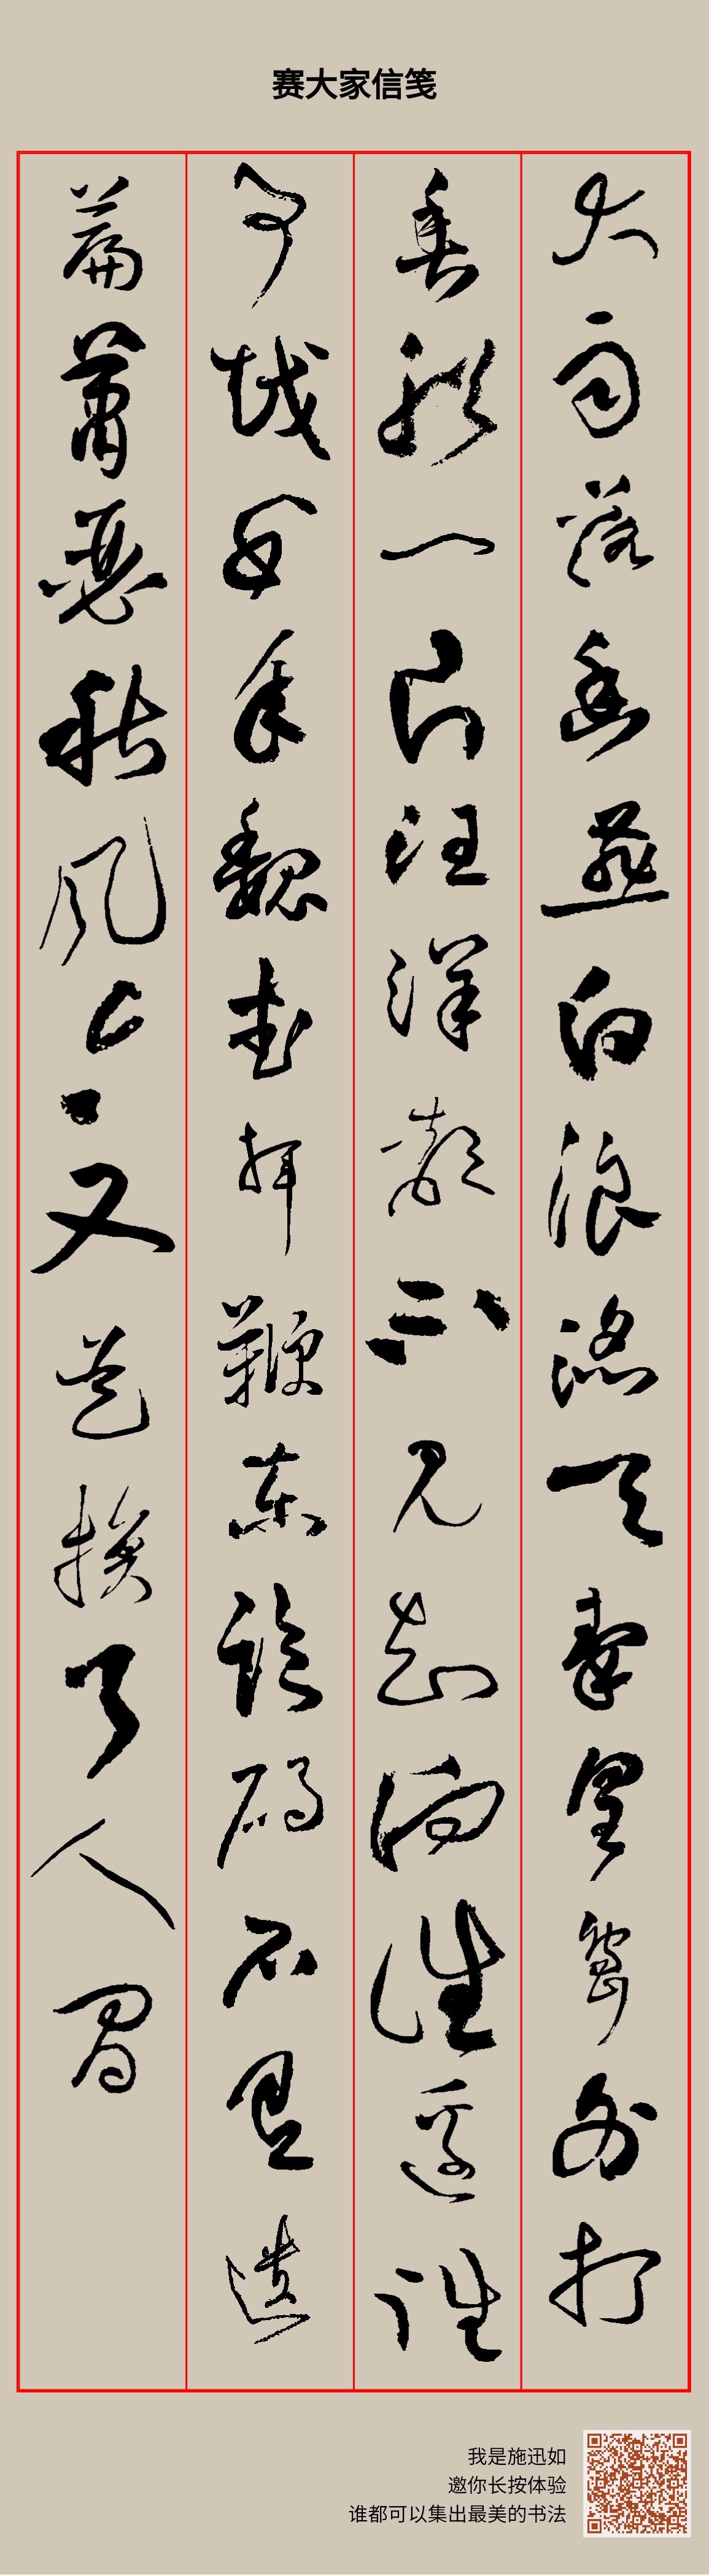 赛大家信笺
大雨落幽燕白浪滔天秦皇岛外打
鱼船一片汪洋都不见知向谁边往
事越千年魏武挥鞭东临碣石有遗
篇萧瑟秋风今又是换了人间
我是施迅如
邀你长按体验
谁都可以集出最美的书法